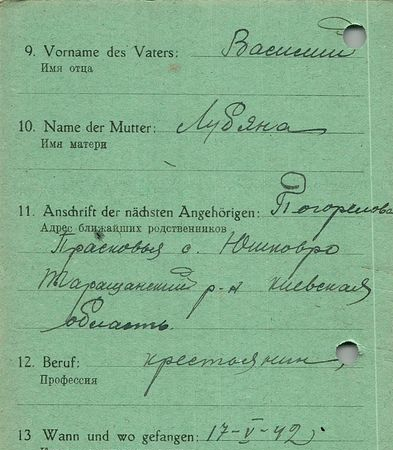 9. Vorname des Vaters: Василий
Имя отца
10. Name der Mutter: Лубяна
Имя матери
11. Anschrift der nächsten Angehörigen: Погорелова
Адрес ближайших родственников
Прасковья с. Юшков
Таращанский р-н киевская
область.
12. Beruf: крестьянин,
Профессия
13 Wann und wo gefangen: 17-V-42